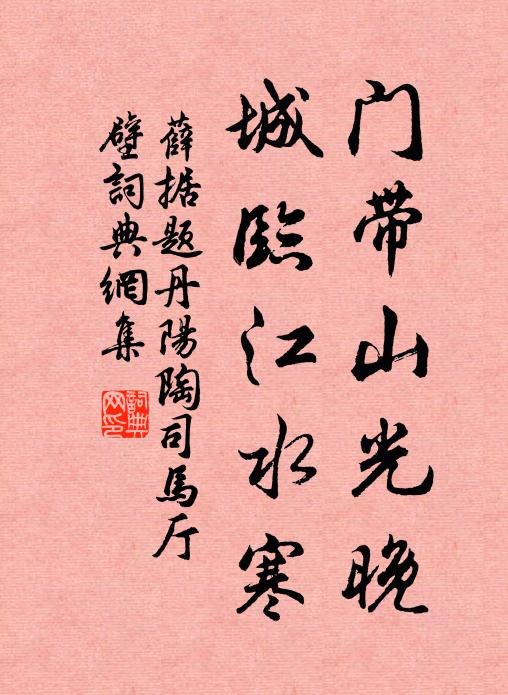 门带山光晚
城臨江水寒
薛据题丹陽陶司馬厅
壁詞典網集
詞典
网印